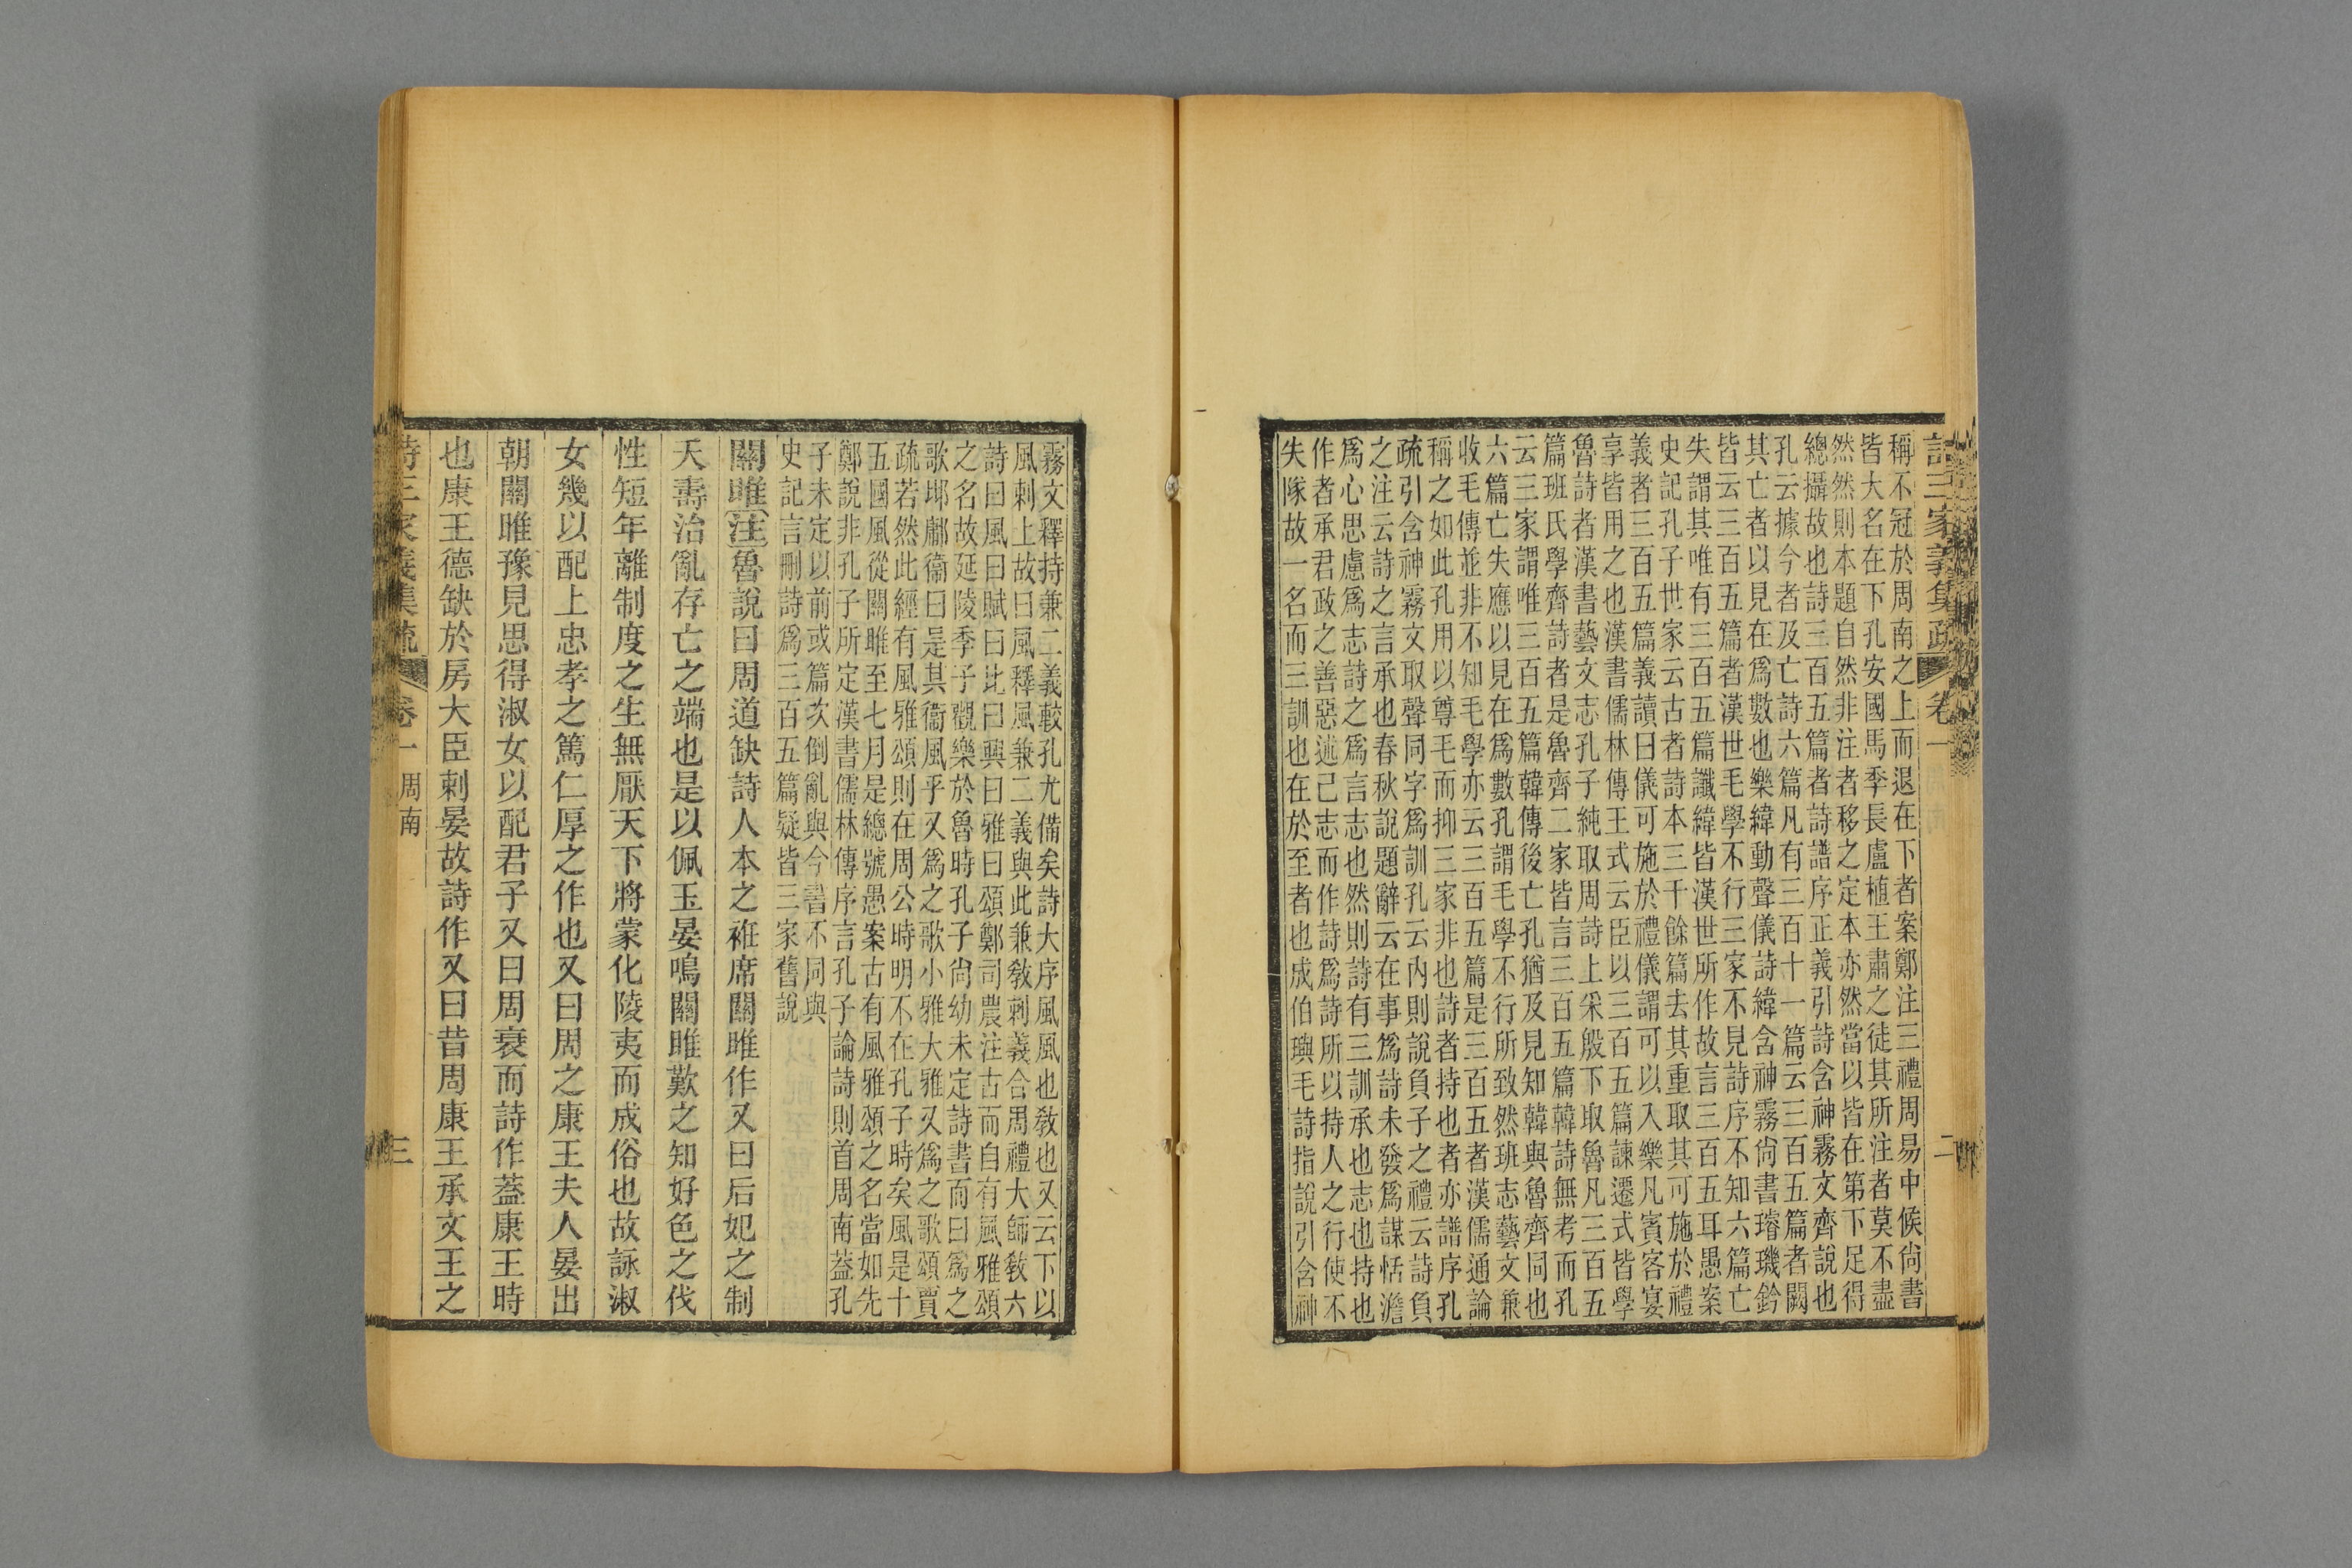 詩三家義集疏 卷一 二
稱不冠於周南之上而退在下者案鄭注三禮周易中候尙書
皆大名在下孔安國馬季長盧植王肅之徒其所注者莫不盡
然然則本題自然非注者移之定本亦然當以皆在第下足得
總攝故也詩三百五篇者詩譜序正義引詩含神霧文齊說也
孔云據今者及亡詩六篇凡有三百十一篇云三百五篇者闕
其亡者以見在爲數也樂緯動聲儀詩緯含神霧尙書璿璣鈐
皆云三百五篇者漢世毛學不行三家不見詩序不知六篇亡
失謂其唯有三百五篇讖緯皆漢世所作故言三百五耳愚案
史記孔子世家云古者詩本三千餘篇去其重取其可施於禮
義者三百五篇義讀曰儀可施於禮儀謂可以入樂凡賓客宴
享皆用之也漢書儒林傳王式云臣以三百五篇諫遷式皆學
魯詩者漢書藝文志孔子純取周詩上采殷下取魯凡三百五
篇班氏學齊詩者是魯齊二家皆言三百五篇韓詩無考而孔
云三家謂唯三百五篇韓傳後亡孔猶及見知韓與魯齊同也
六篇亡失應以見在爲數孔謂毛學不行所致然班志藝文兼
收毛傳並非不知毛學亦云三百五篇是三百五者漢儒通論
稱之如此孔用以尊毛而抑三家非也詩者持也者亦譜序孔
疏引含神霧文取聲同字爲訓孔云內則說負子之禮云詩負
之注云詩之言承也春秋說題辭云在事爲詩未發爲謀恬澹
爲心思慮爲志詩之爲言志也然則詩有三訓承也志也持也
作者承君政之善惡述己志而作詩爲詩所以持人之行使不
失隊故一名而三訓也在於至者也成伯璵毛詩指說引含神
霧文釋持兼二義較孔尤備矣詩大序風風也敎也又云下以
風刺上故曰風釋風兼二義與此兼敎刺義合周禮大師敎六
詩曰風曰賦曰比曰興曰雅曰頌鄭司農注古而自有風雅頌
之名故延陵季子觀樂於魯時孔子尙幼未定詩書而曰爲之
歌邶鄘衞曰是其衞風乎又爲之歌小雅大雅又爲之歌頌賈
疏若然此經有風雅頌則在周公時明不在孔子時矣風是十
五國風從關雎至七月是總號愚案古有風雅頌之名當如先
鄭說非孔子所定漢書儒林傳序言孔子論詩則首周南蓋孔
子未定以前或篇次倒亂與今書不同與
史記言刪詩爲三百五篇疑皆三家舊說
關雎注魯說曰周道缺詩人本之袵席關雎作又曰后妃之制
夭壽治亂存亡之端也是以佩玉晏鳴關雎歎之知好色之伐
性短年離制度之生無厭天下將蒙化陵夷而成俗也故詠淑
女幾以配上忠孝之篤仁厚之作也又曰周之康王夫人晏出
朝關雎豫見思得淑女以配君子又曰周衰而詩作蓋康王時
也康王德缺於房大臣刺晏故詩作又曰昔周康王承文王之
詩三家義集疏 卷一 周南 三